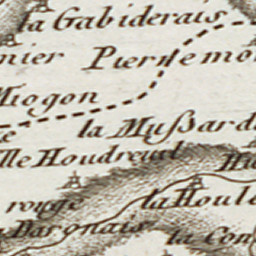 la Gabiderais
nier Pierre mo
Miogon
la Mußard
lle Houdreuil
rouge
la Houle
Dargnais
la Con